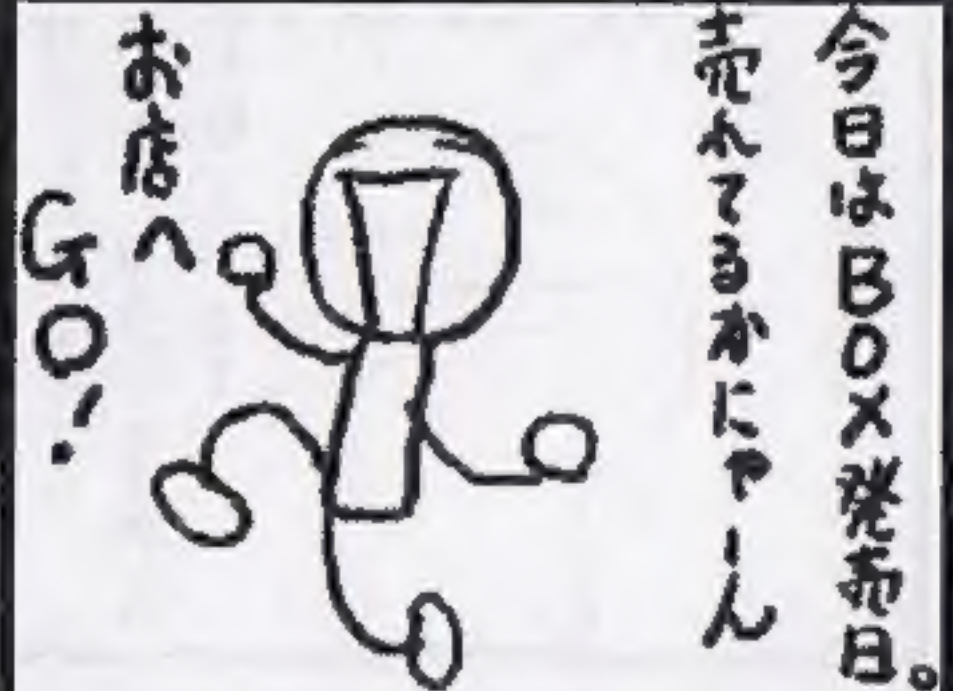 今日はBOX発売日。
売れてるかにゃーん
お店へ
GO!